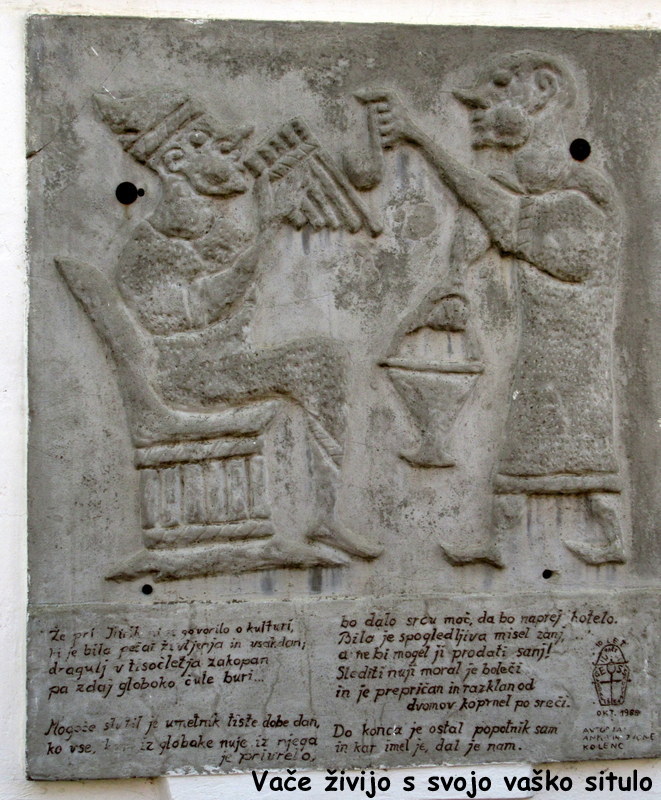 Že pri govorilo o kulturi,
ki je bila pečat življenja in vsakdanj
dragulj v tisočletja zakopan
pa zdaj globoko čute buri...
Mogoče slutil je umetnik tiste dobe dan,
ko vse, iz globoke nuje iz njega
je privrelo,
bo dalo srcu moč, da bo naprej hotelo.
Bila je spogledljiva misel zanj,
a ne bi mogel ji prodati sanj!
Slediti nuji moral je boleči
in je prepričan in razklan od
dvomov koprnel po sreči.
Do konca je ostal popotnik sam
in kar imel je, dal je nam.
OKT. 1988
KOLENC
Vače živijo s svojo vaško situlo